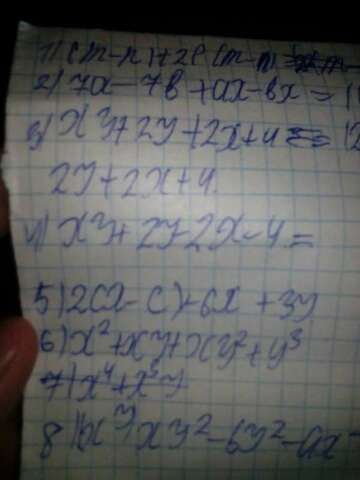 1) (m-n)+2p(m-n)=
2) 7a-7в+ax-вx=
3) xy+2y+2x+4=
2y+2x+4
4) xy+2y-2x-4=
5) 2(x-c)+6x+3y
6) x²+xy+xy²+y³
7) x⁴+x³y
xy²-by²-ax